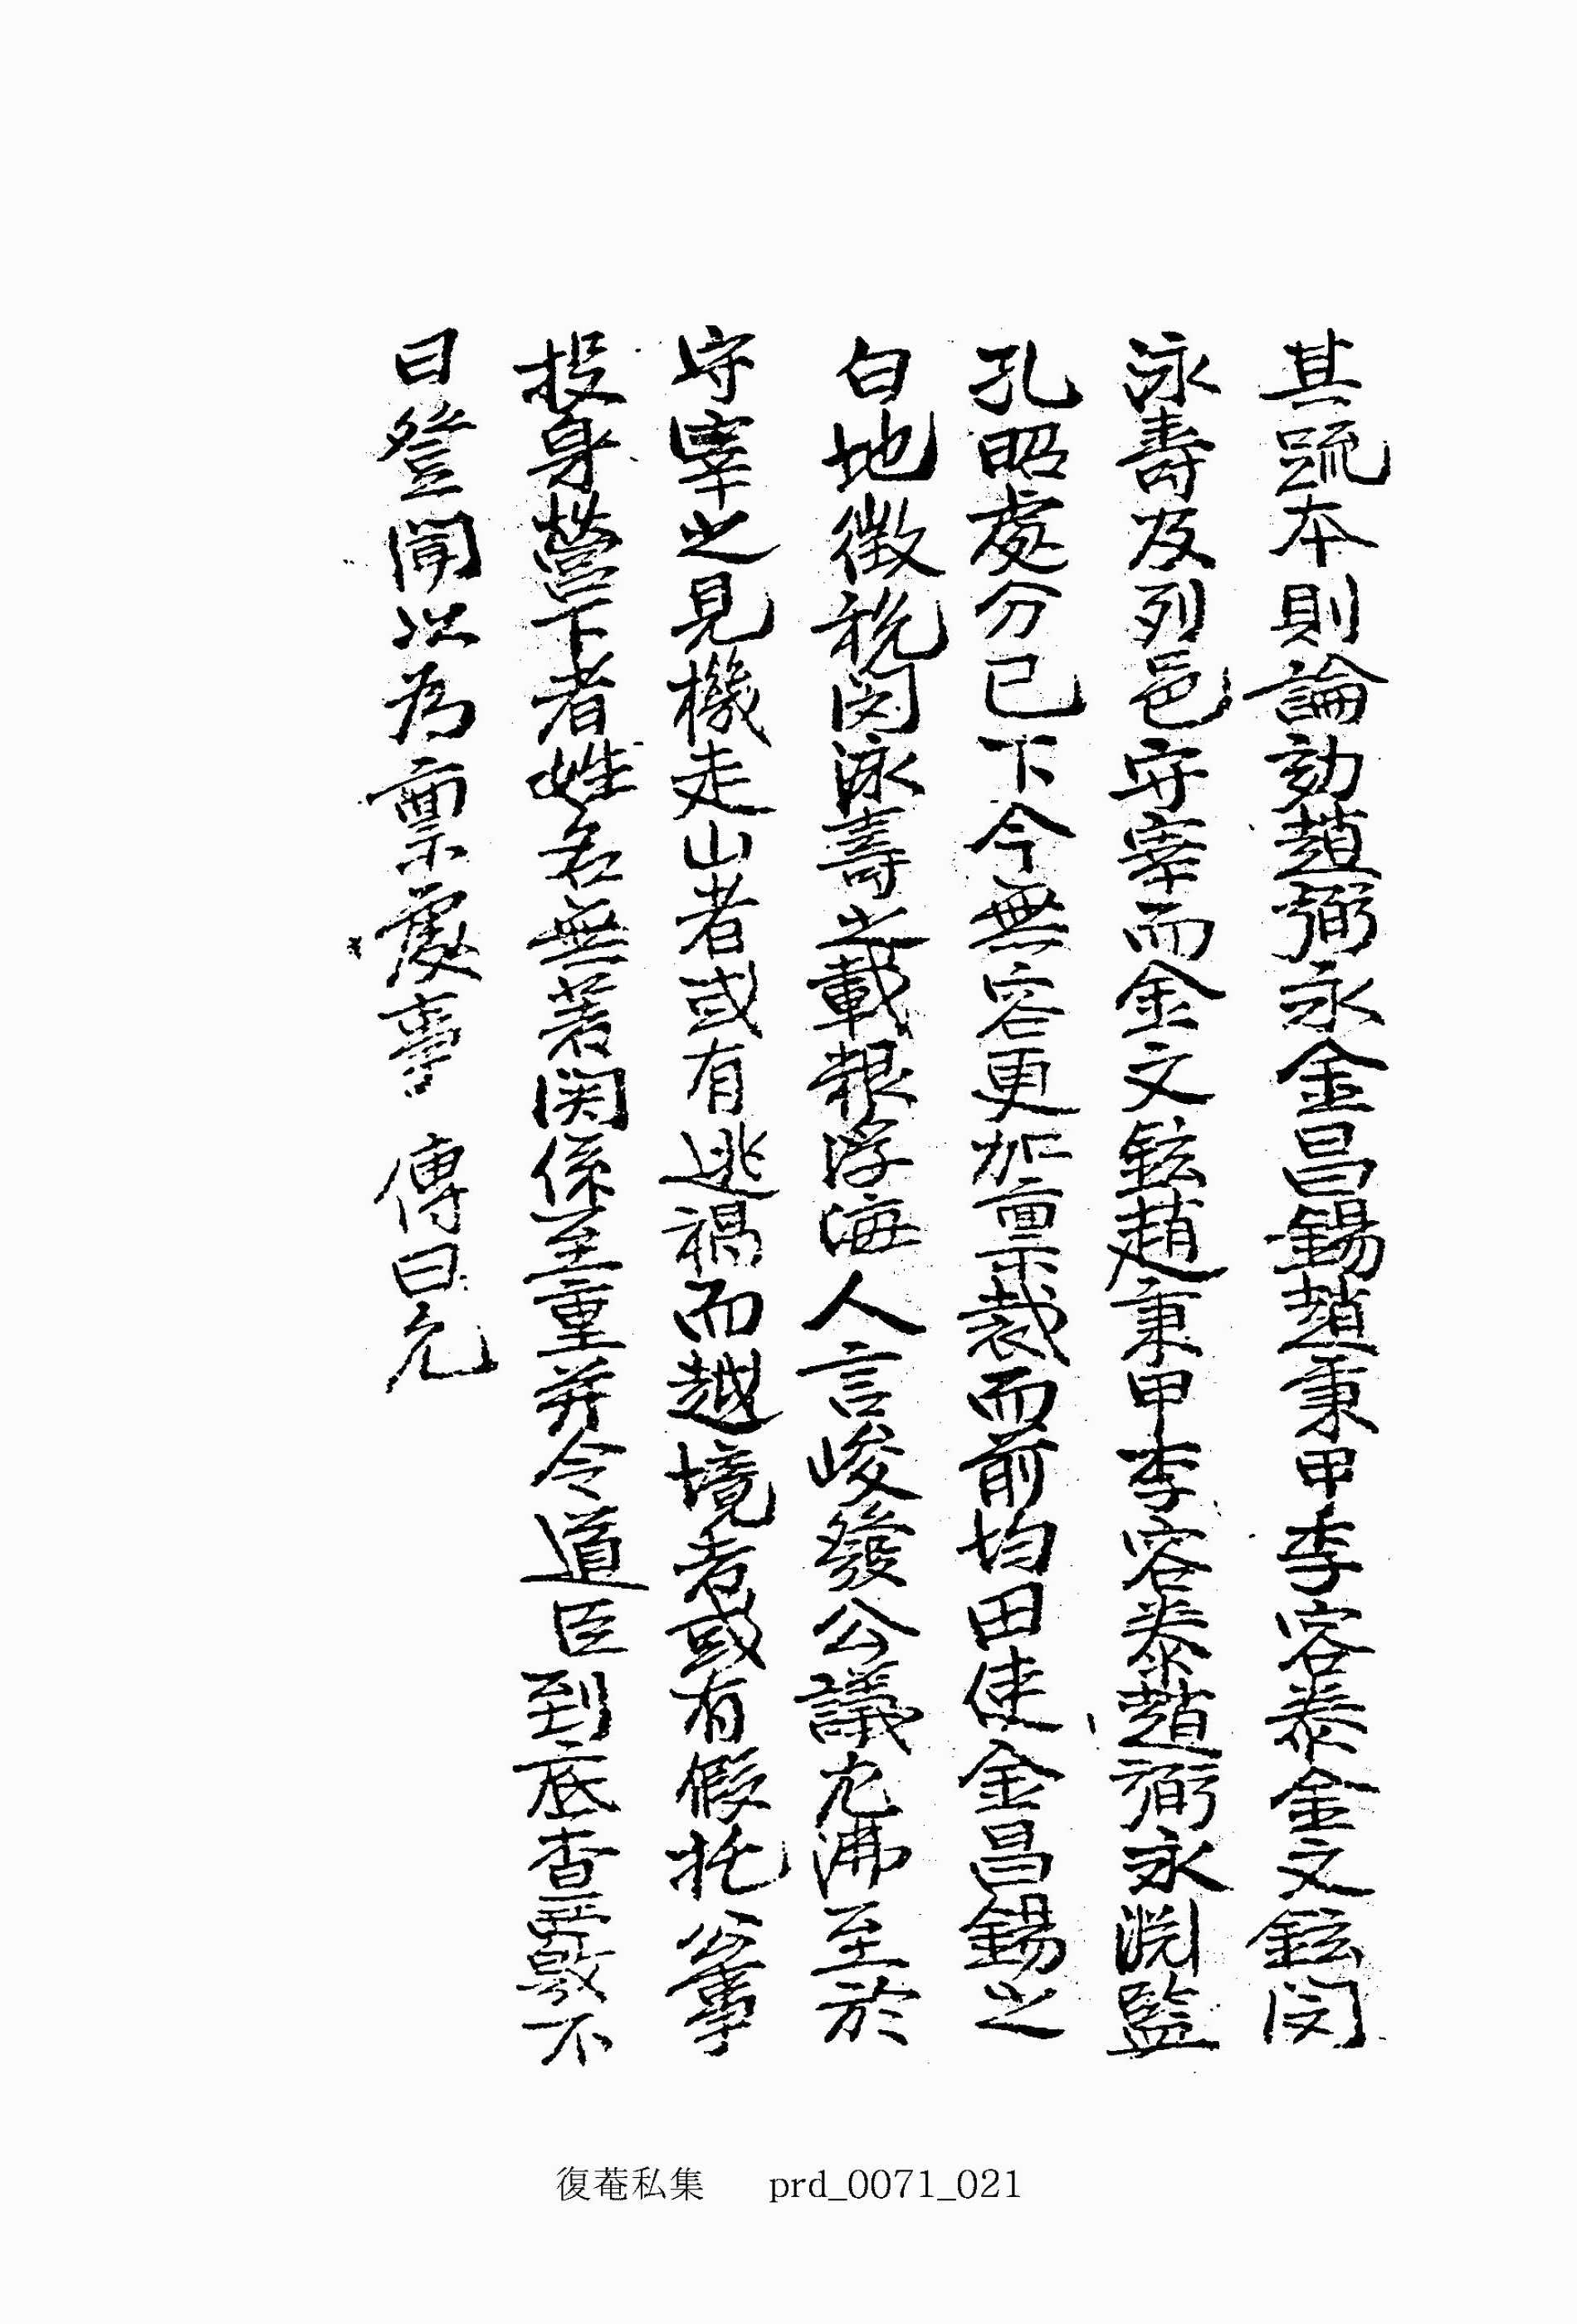 其疏本則論劾趙弼永金昌錫趙秉甲李容泰金文鉉閔
泳壽及列邑守宰而金文鉉趙秉甲李容泰趙弼永渕監
孔昭處分已下今無容更加稟裁而前均田使金昌錫之
白地徵稅閔泳壽之載粮浮海人言峻發公議尤沸至於
守宰之見機走山者或有逃禍而越境者或有假托公事
投身營下者姓名無著関係至重並令道臣到底查覈不
日登聞以爲稟處事 傳曰允
復菴私集 prd_0071_021